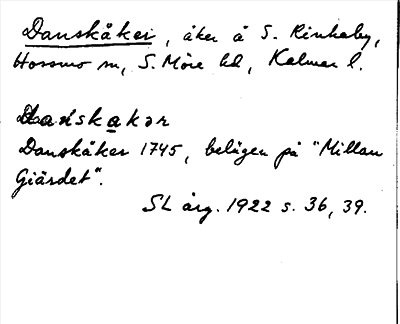 Danskåker, åker å S. Rinkaby,
Hossmo sn, S. Möre hd, Kalmar l.
danskakər
Danskåker 1745, belägen på "Millan
Giärdet".
SL årg. 1922 s. 36, 39.